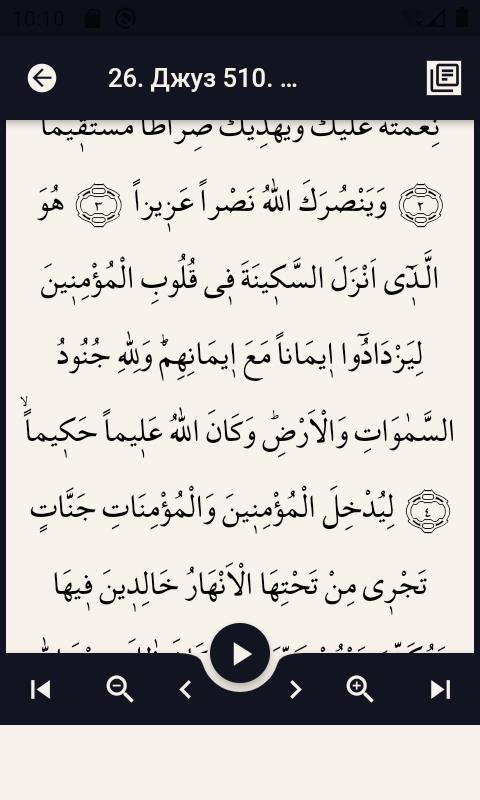 10:10
26. Джуз 510. ...
نِعْمَتَهُ عَلَيْكَ وَيَهْدِيَكَ صِرَاطاً مُسْتَقٖيماً
﴿٢﴾ وَيَنْصُرَكَ اللّٰهُ نَصْراً عَزٖيزاً ﴿٣﴾ هُوَ
الَّذٖٓى اَنْزَلَ السَّكٖينَةَ فٖى قُلُوبِ الْمُؤْمِنٖينَ
لِيَزْدَادُٓوا اٖيمَاناً مَعَ اٖيمَانِهِمْۜ وَلِلّٰهِ جُنُودُ
السَّمٰوَاتِ وَالْاَرْضِۜ وَكَانَ اللّٰهُ عَلٖيماً حَكٖيماًۙ
﴿٤﴾ لِيُدْخِلَ الْمُؤْمِنٖينَ وَالْمُؤْمِنَاتِ جَنَّاتٍ
تَجْرٖى مِنْ تَحْتِهَا الْاَنْهَارُ خَالِدٖينَ فٖيهَا